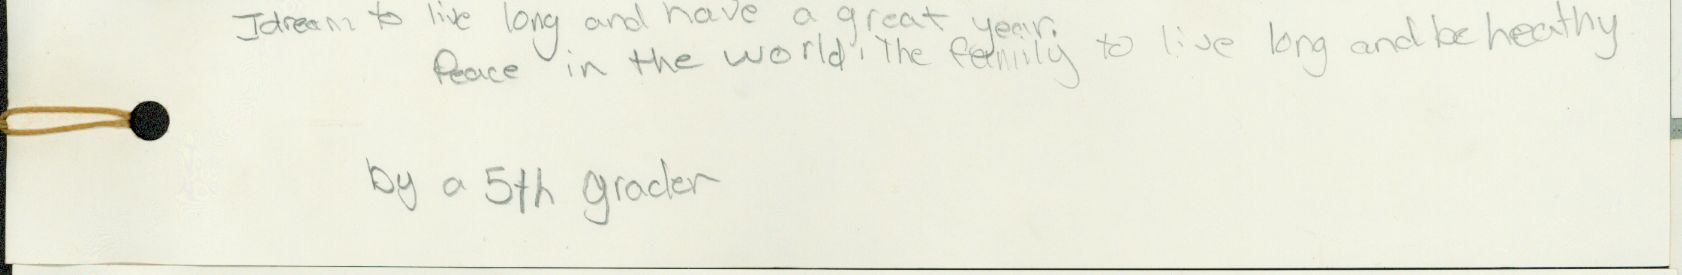 I dream to live long and have a great year.
Peace in the world, The family to live long and be heathy
by a 5th grader